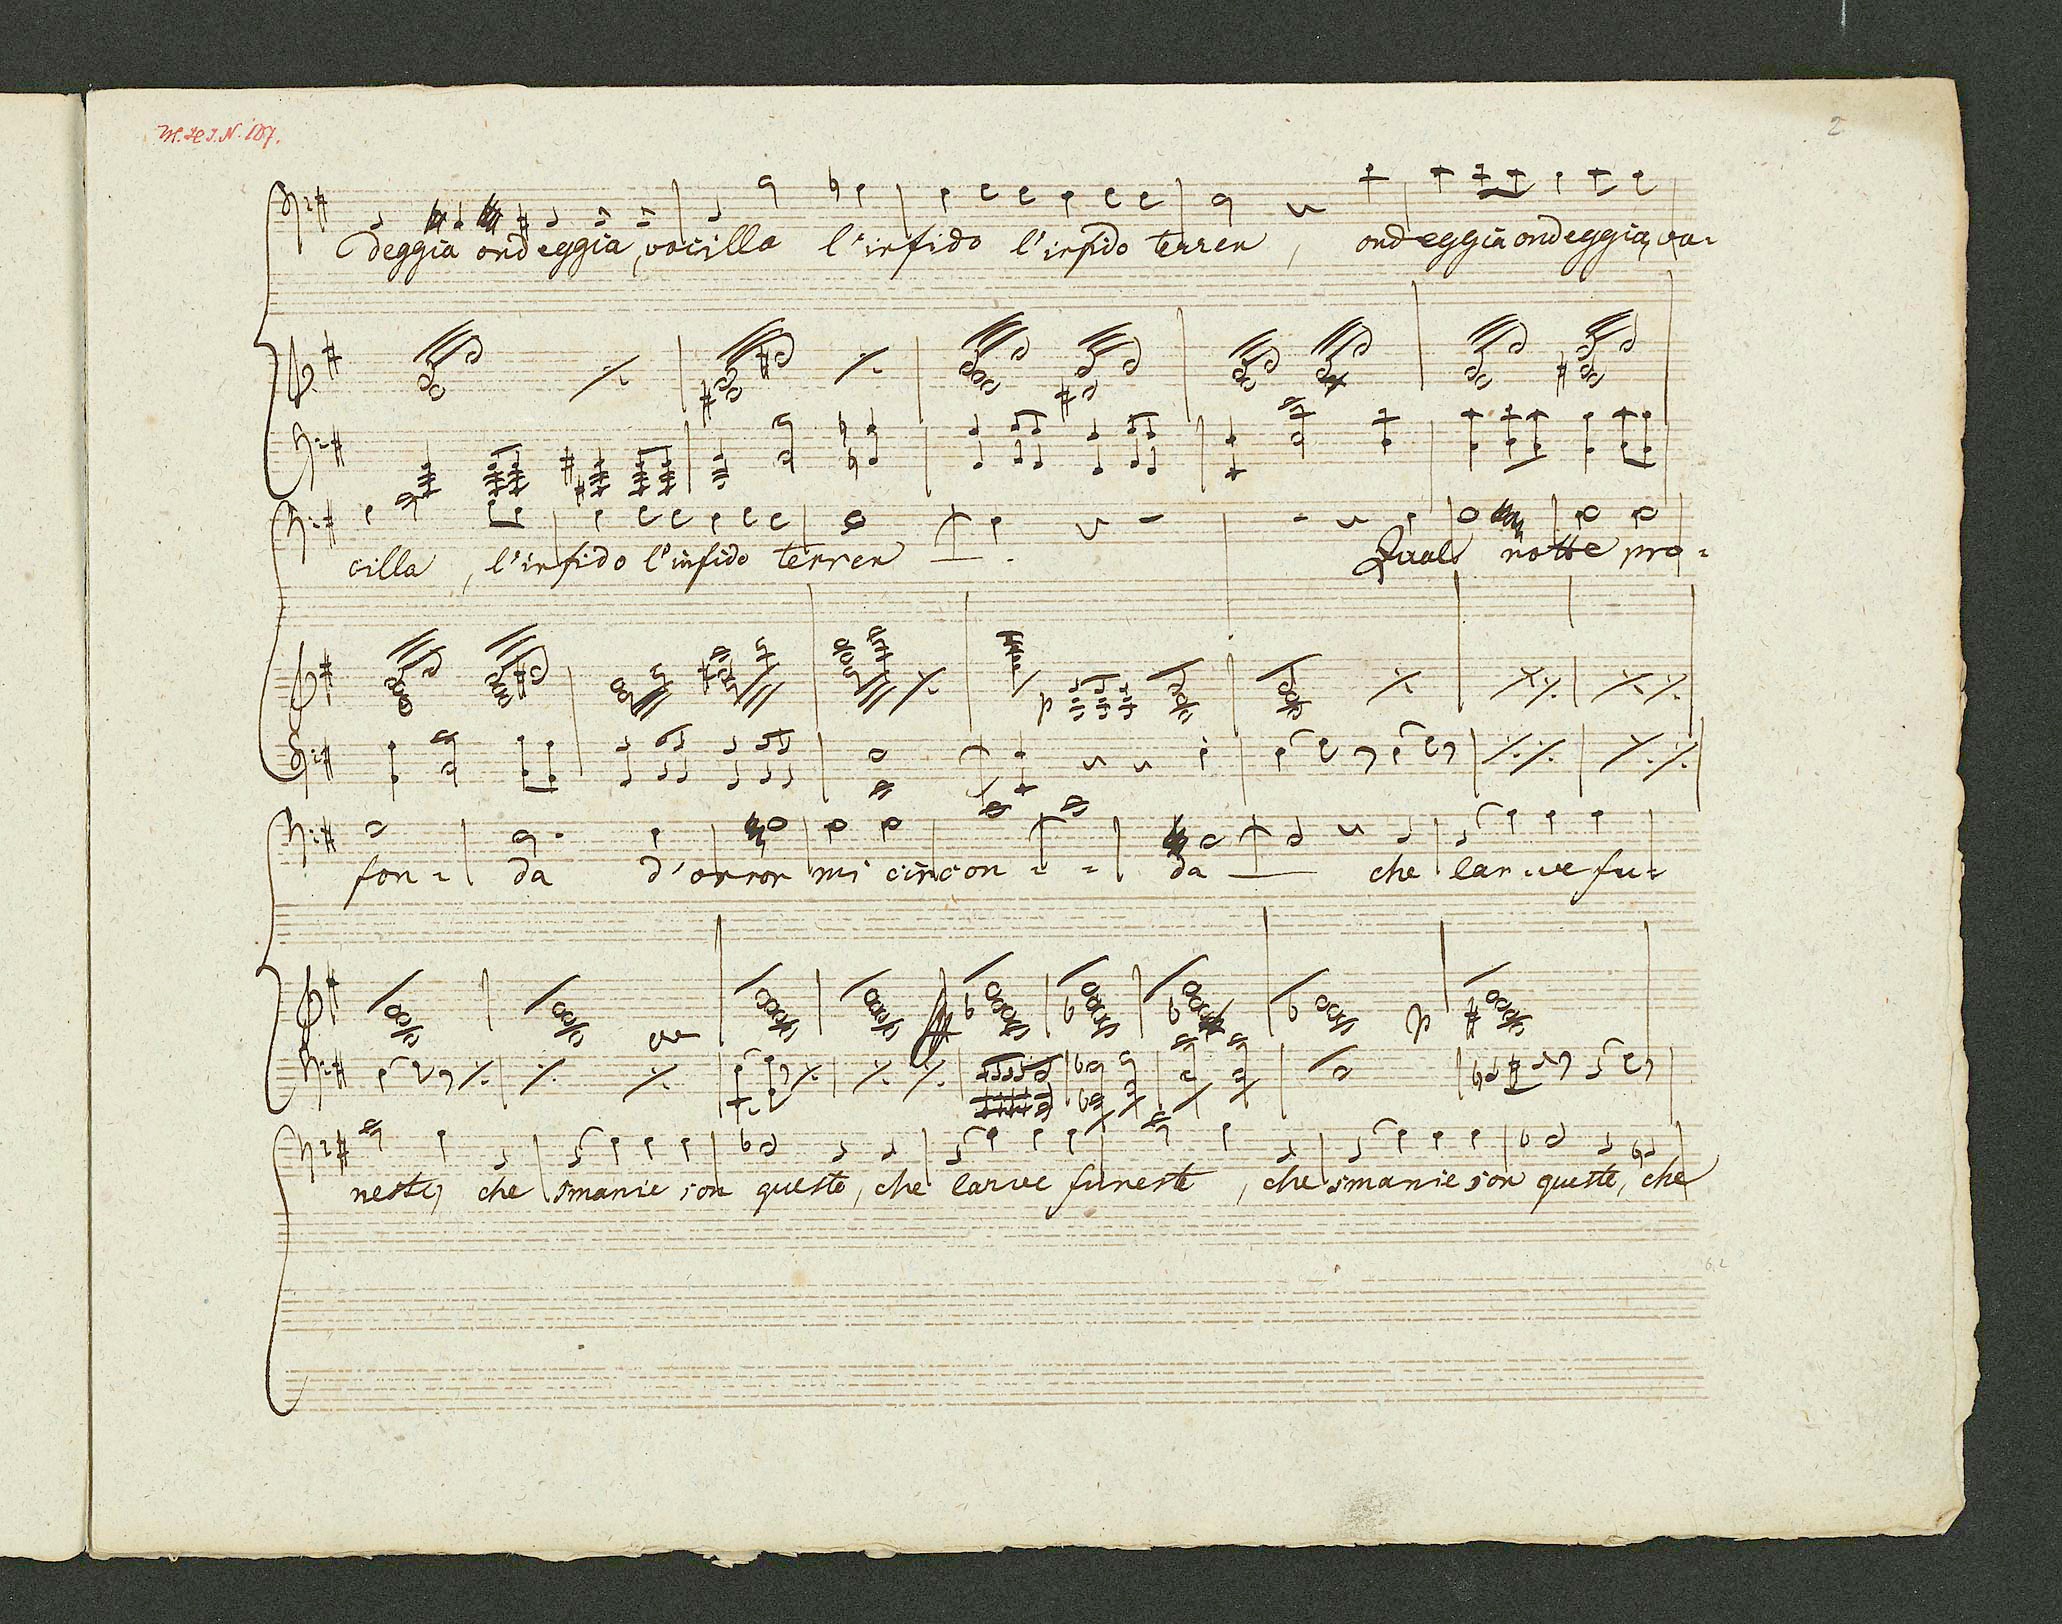 2
deggia ondeggia, vacilla l'infido l'infido terren, ondeggia ondeggia, va-
cilla, l'infido l'infido terren Qual notte pro-
p
fon - da d'orror mi circon - - da che larve fu-
ff p
neste, che smanie son queste, che larve funeste, che smanie son queste, che